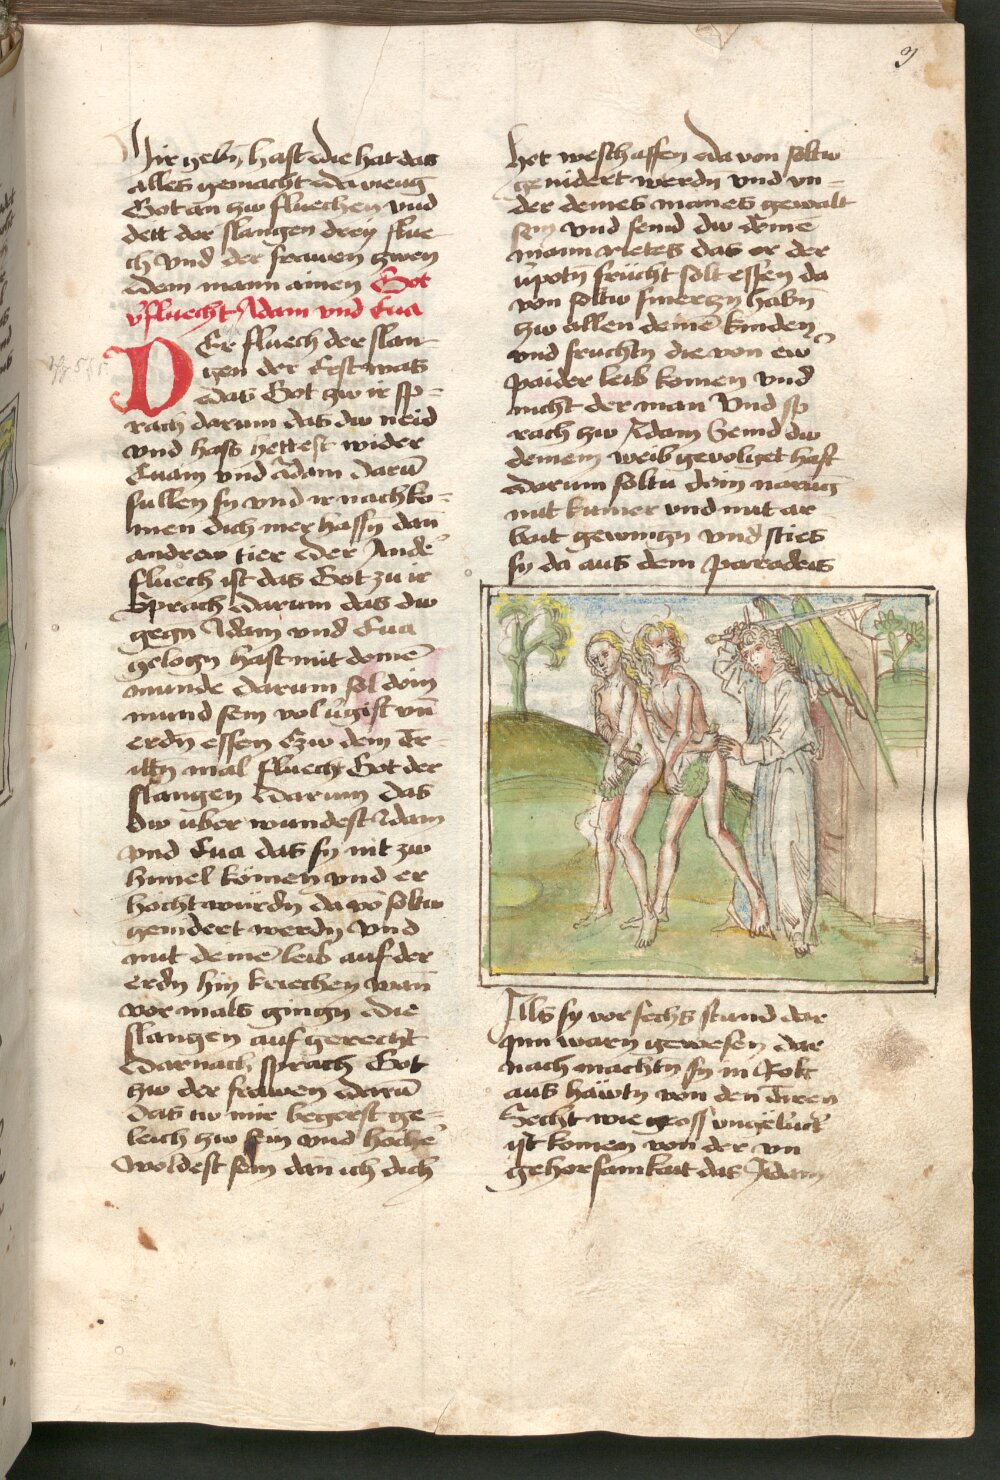 9
Mir gebn hast die hat das
alles gemacht da vieng
Got an zw fluechen vnd
dett der slangen dreÿ flue
ch vnd der frawen zwen
dem mann ainen Got
vfluecht Adam vnd Eua
DEr fluech der slan-
gen der Erst was
das Got zw ir sp-
rach darum das dw neid
vnd hass hettest wider
Euam vnd Adam darū
sullen sy vnd ir nachko-
men dich mer hassn dan̄
andrew tier Der Ande
fluech ist das Got zu ir
Sprach darum das dw
gegn Adam vnd Eua
gelogn hast mit deinē
munde darum sol dein
mund sein vol v̈gift vn̄
erdn essen Czw dem dr-
ittn mal fluech Got der
slangen darum das
dw über wundest Adam
vnd Eua das sy nit zw
himel kömen vnd er
hocht würdn da vō soltw
genidert werdn vnd
mit deinē leib auf der
erdn hin kriechen wan̄
vor mals gingn die
slangen auf gerecht
darnach sprach Got
zw der frawen darū
das tw mir begerst ge-
leich zw sein vnd hochē
woldest sein dan ich dich
het weschaffen da von soltw
genidert werdn vnd vn-
der deines manes gewalt
sein vnd seind dw deinē
mann rietes das er der
v̈potn frücht solt essen da
von soltw smerczn habn̄
zw allen deinē kinden
vnd fruchtn die von ew̄
paider leib komen vnd
nicht der man Vnd sp
rach zw Adam Seind dw
deinem weib gevolget hast
darum soltu dein narūg
mit kumer vnd mit ar
bait gewingn vnd sties
sy da aus dem paradeis
Als sy vor sechs stund dar
jnn warn gewesen dar
nach machtn sy in Rokc
aus häwtn von den tiren
Secht wie gross vngelück
ist komen von der vn
gehorsamkait das Adam